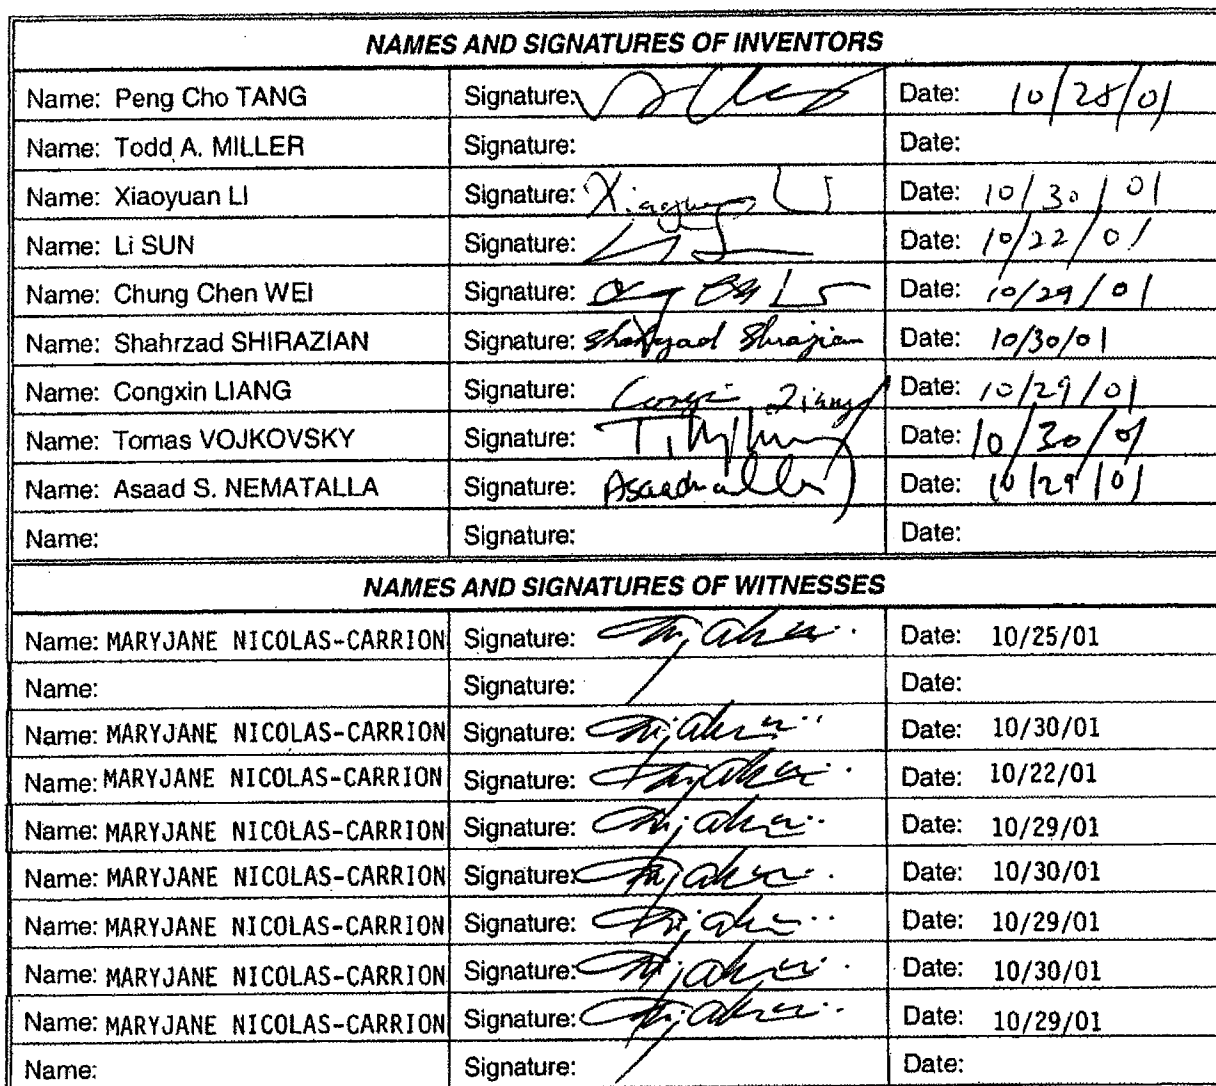 NAMES AND SIGNATURES OF INVENTORS
Name: Peng Cho TANG Signature: Date: 10/25/01
Name: Todd A. MILLER Signature: Date:
Name: Xiaoyuan LI Signature: Xiaoyuan Li Date: 10/30/01
Name: Li SUN Signature: Date: 10/22/01
Name: Chung Chen WEI Signature: Date: 10/29/01
Name: Shahrzad SHIRAZIAN Signature: Shahrzad Shirazian Date: 10/30/01
Name: Congxin LIANG Signature: Congxin Liang Date: 10/29/01
Name: Tomas VOJKOVSKY Signature: Date: 10/30/01
Name: Asaad S. NEMATALLA Signature: Date: 10/29/01
Name: Signature: Date:
NAMES AND SIGNATURES OF WITNESSES
Name: MARYJANE NICOLAS-CARRION Signature: Date: 10/25/01
Name: Signature: Date:
Name: MARYJANE NICOLAS-CARRION Signature: Date: 10/30/01
Name: MARYJANE NICOLAS-CARRION Signature: Date: 10/22/01
Name: MARYJANE NICOLAS-CARRION Signature: Date: 10/29/01
Name: MARYJANE NICOLAS-CARRION Signature: Date: 10/30/01
Name: MARYJANE NICOLAS-CARRION Signature: Date: 10/29/01
Name: MARYJANE NICOLAS-CARRION Signature: Date: 10/30/01
Name: MARYJANE NICOLAS-CARRION Signature: Date: 10/29/01
Name: Signature: Date: